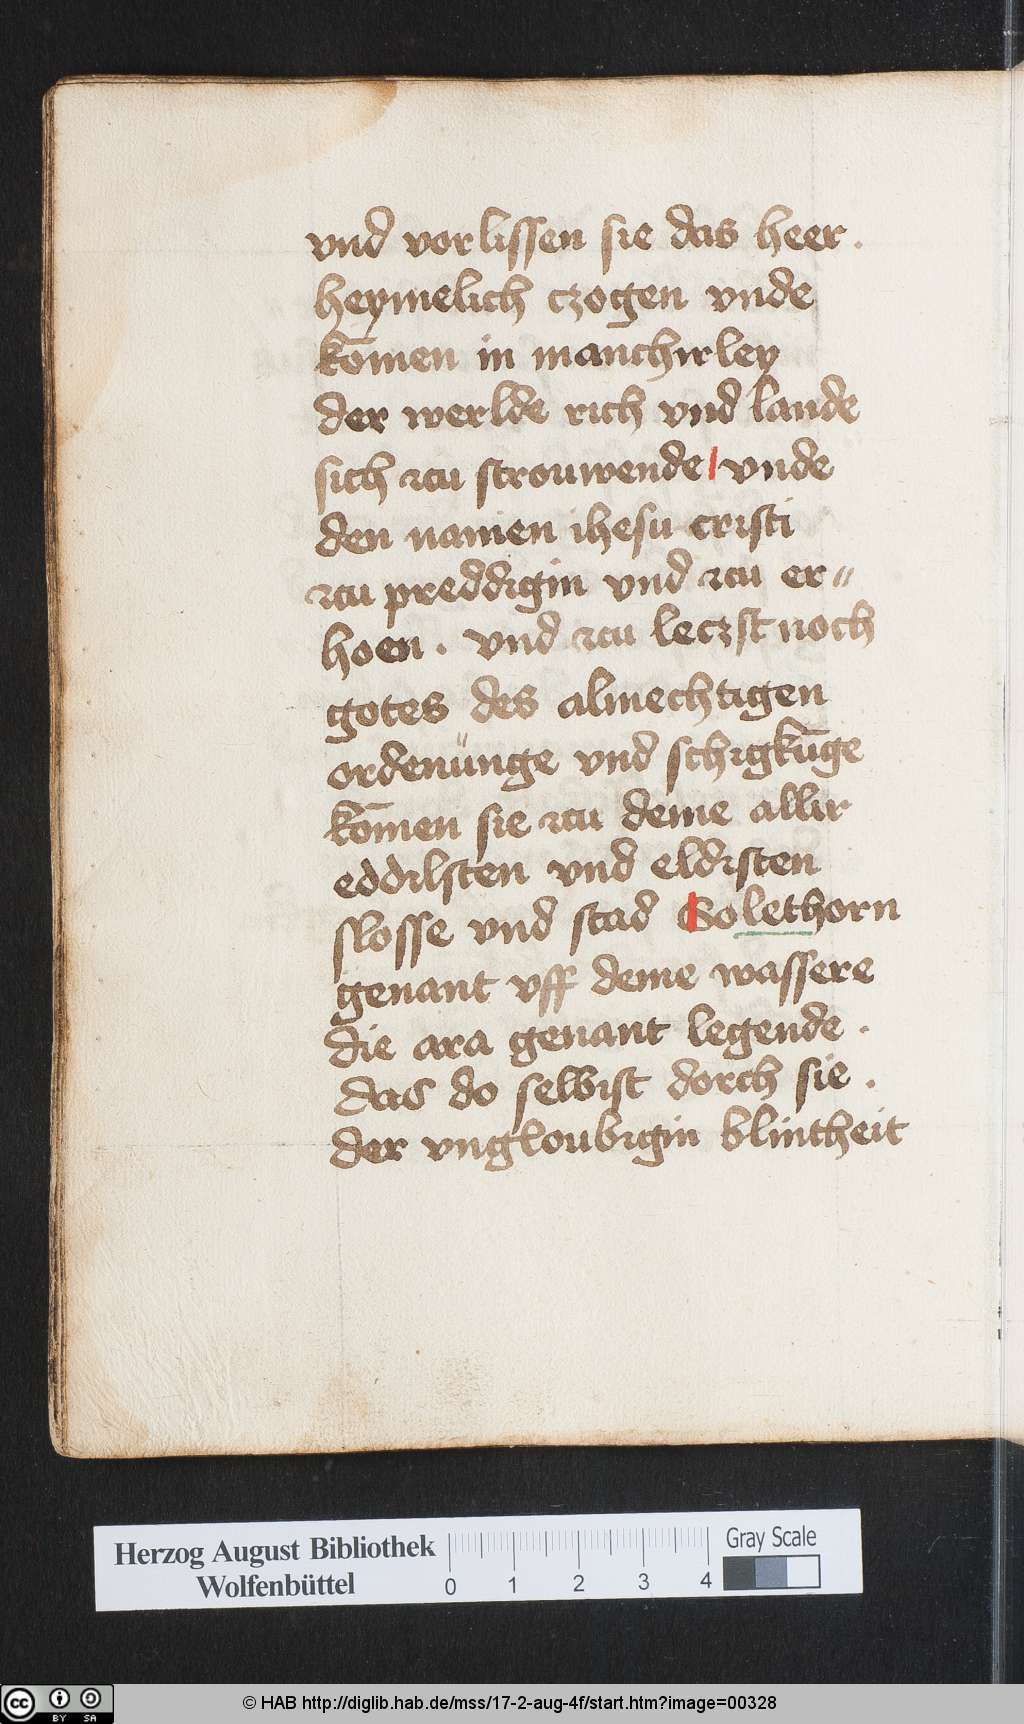 vnd vorlissen sie das heer.
heymelich czogen vnde
kōmen in manchirley
der werlde rich vnd lande
sich zcu strouwende | vnde
den namen ihesu cristi
zcu preddigin vnd zcu er⸗
hoen. vnd zcu leczst noch
gotes des almechtigen
ordenünge vnd schigkūge
kōmen sie zcu deme allir
eddilsten vnd eldisten
slosse vnd stad Solethorn
genant vff deme wassere
die ara genant legende.
das do selbist dorch sie.
der vngloubigin blintheit
Herzog August Bibliothek
Wolfenbüttel
0 1 2 3 4
Gray Scale
cc BY SA
© HAB http://diglib.hab.de/mss/17-2-aug-4f/start.htm?image=00328